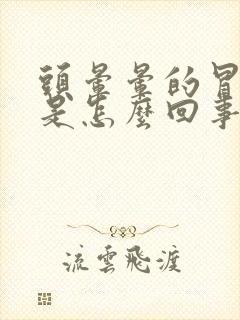 頭暈暈的冒
是怎麼回事
流雲飛渡